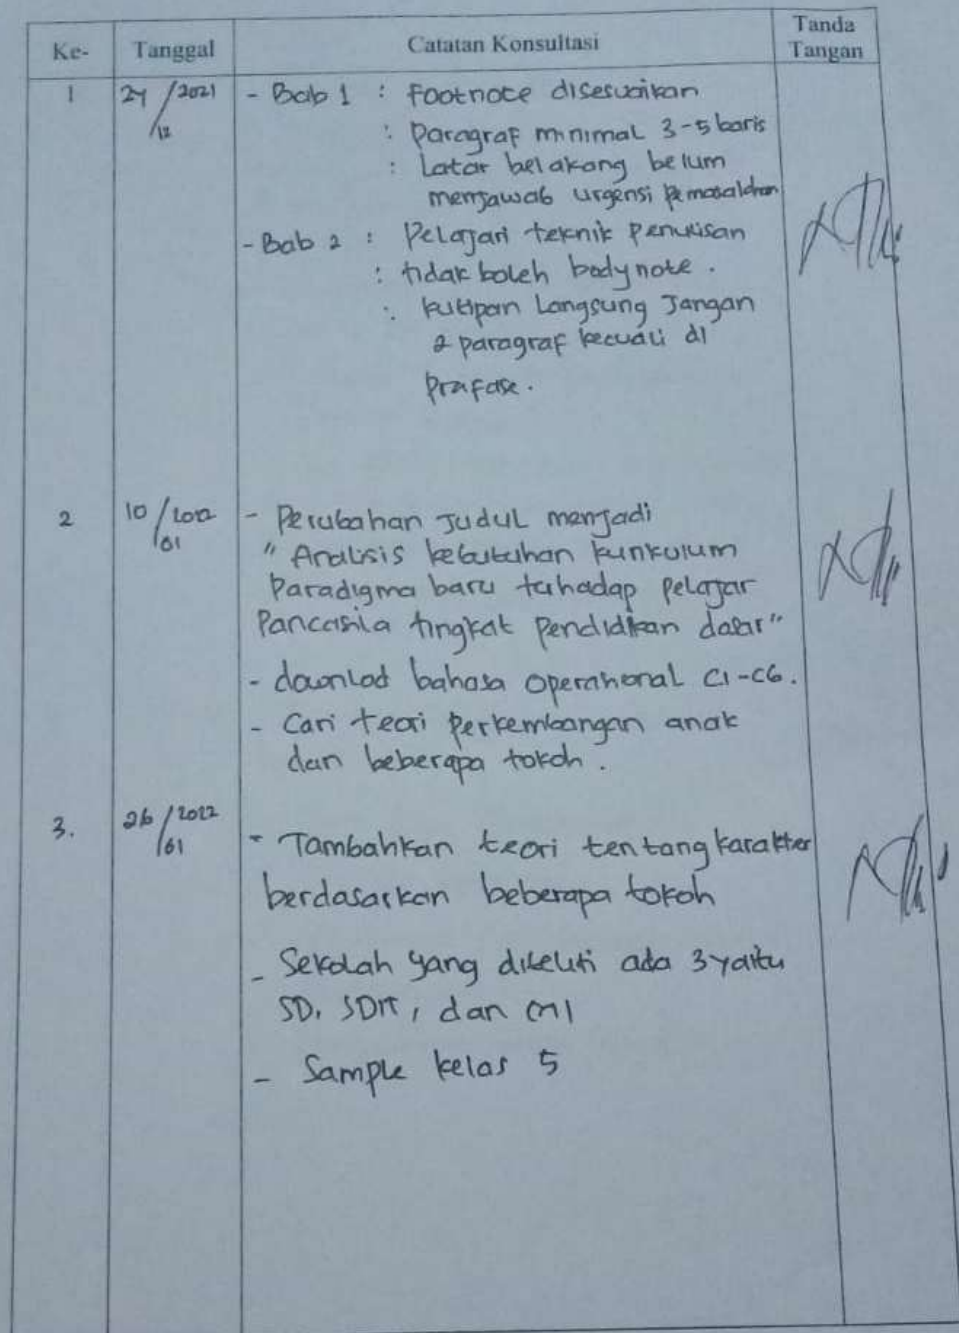 Ke- Tanggal Catatan Konsultasi Tanda Tangan
1 24/12 2021 - Bab 1 : Footnote disesuaikan
: Paragraf minimal 3-5 baris
: Latar belakang belum
menjawab urgensi permasalahan
- Bab 2 : Pelajari teknik penulisan
: tidak boleh bodynote.
: kutipan Langsung Jangan
2 paragraf kecuali di
Prafase.
2 10/01 2022 - Perubahan Judul menjadi
" Analisis kebutuhan kurikulum
Paradigma baru terhadap pelajar
Pancasila tingkat pendidikan dasar"
- downlod bahasa operasional C1-C6.
- Cari teori perkembangan anak
dan beberapa tokoh.
3. 26/01 2022 - Tambahkan teori tentang karakter
berdasarkan beberapa tokoh
- Sekolah yang diteliti ada 3 yaitu
SD, SDIT, dan MI
- Sample kelas 5